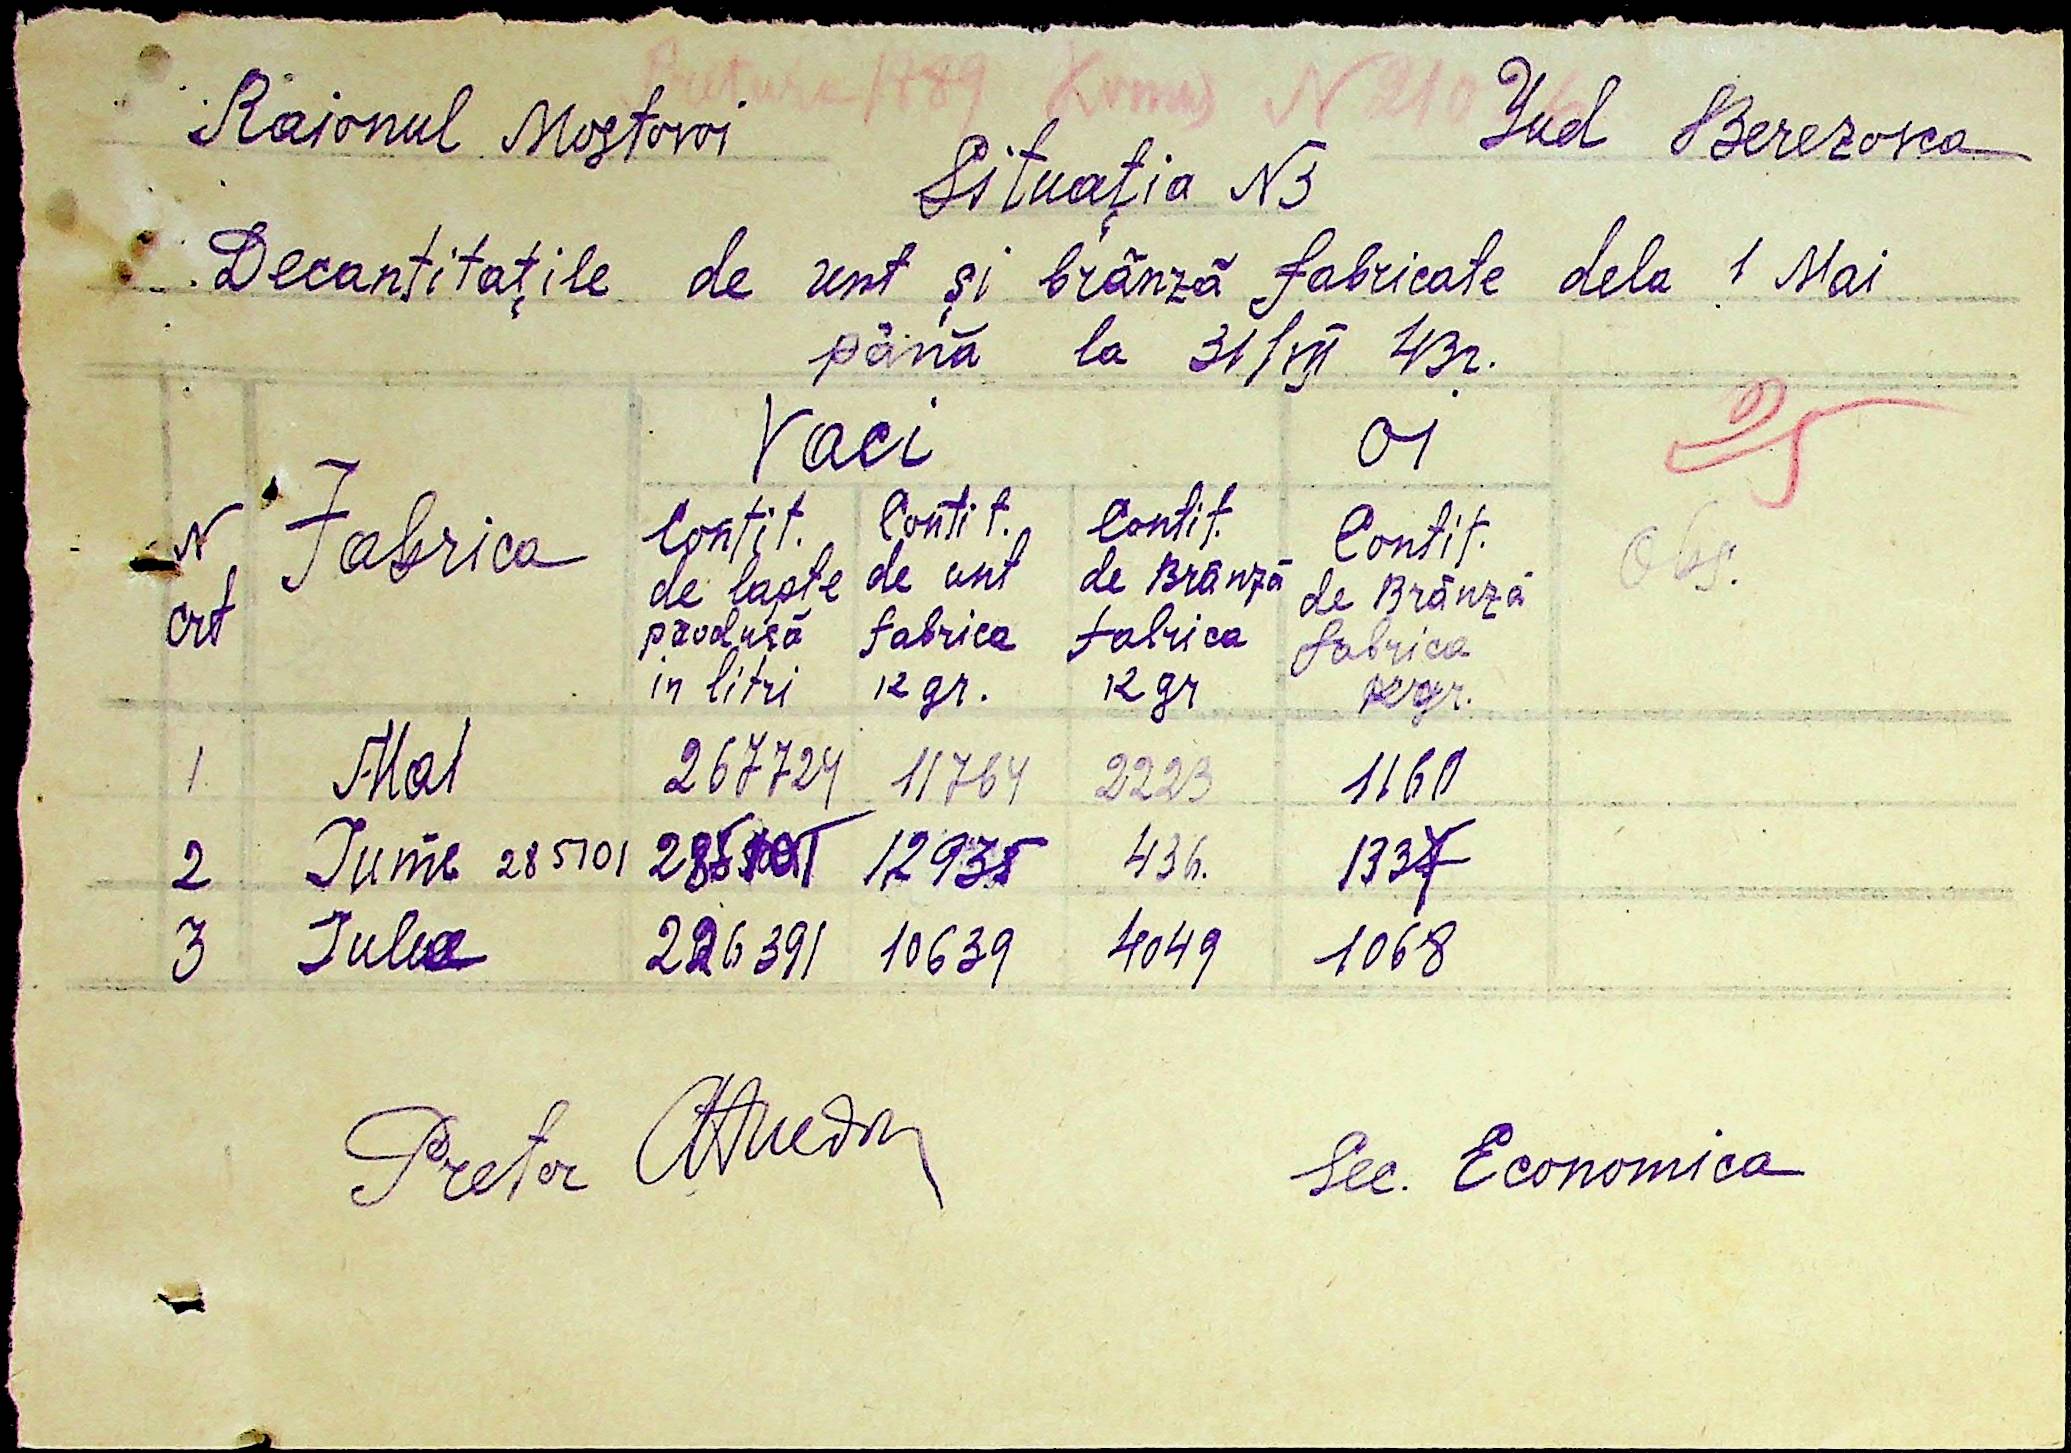 Raionul Mostovoi
Jud Berezovca
Situaţia N3
Decantitaţile de unt şi brânză fabricate dela 1 Mai
până la 31/VII 43r.
Vaci Oi
N crt Fabrica
Contit. de lapte produsă in litri
Contit. de unt fabrica Kgr.
Contit. de Brânză fabrica Kgr
Contit. de Brânză fabrica Kgr.
Obs.
25
1 Mai 267724 11764 2223 1160
2 Iunie 285101 285101 12935 436. 1337
3 Iulie 226391 10639 4049 1068
Pretor
Sec. Economica